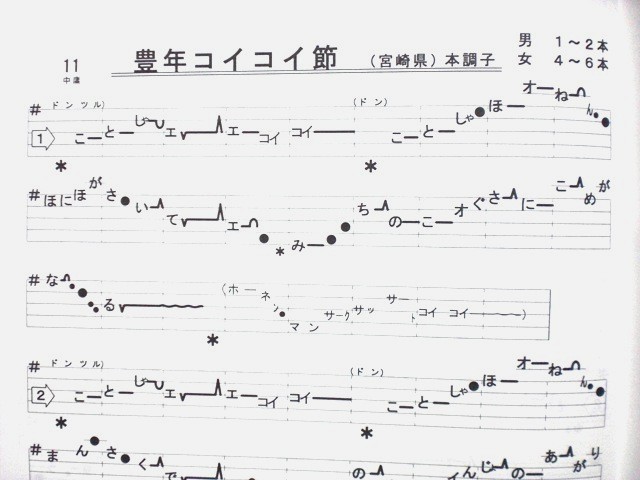 11
中庸
豊年コイコイ節 (宮崎県) 本調子
男 1～2本
女 4～6本
# ドンツル) (ドン)
1 ことしゃ じ エ エ コイ コイ ことしゃ ほ オ ね ん
# ほにほがさ い て エ み ち の こ オ ぐ さ に こ め が
# な る (ホーネン マン サーク サッ サー ト コイ コイ)
# ドンツル) (ドン)
2 こと じ エ エ コイ コイ ことしゃ ほ オ ね ん
# まんさ く で の イ ん じ の あ が り